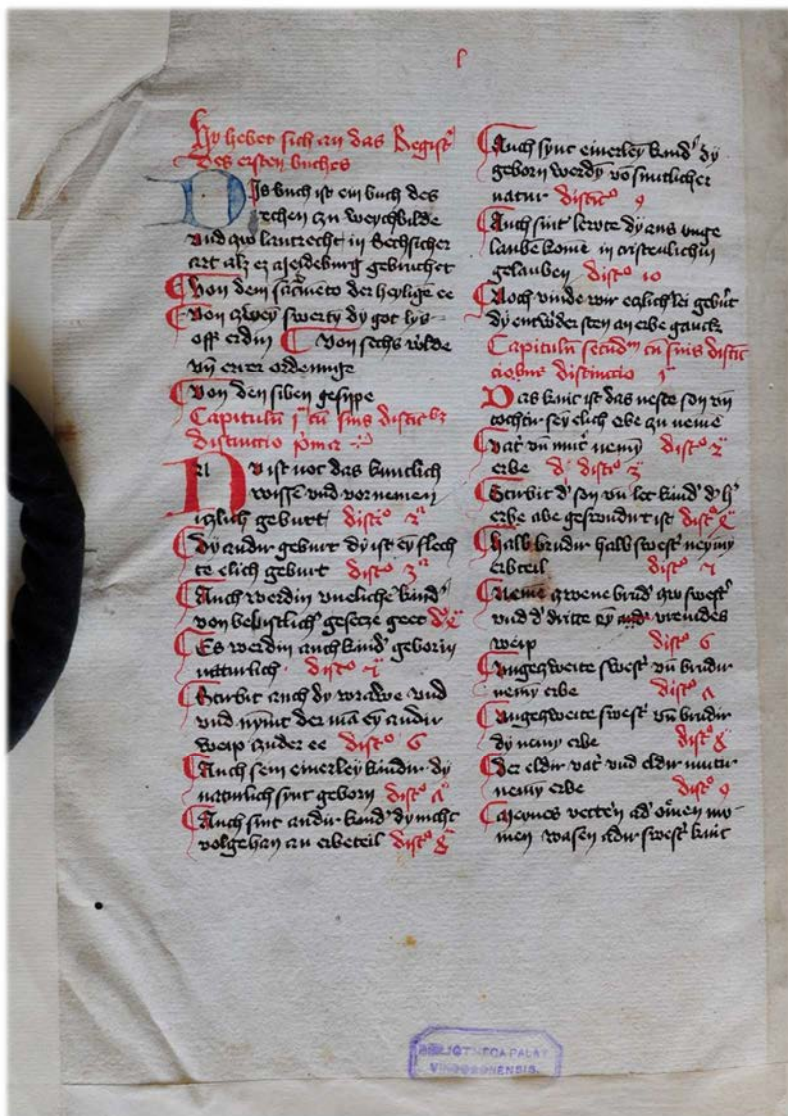 Hy hebet sich an das Regist᷑
des ersten buches
Dis buch ist ein buch des
rechen zu weychbilde
vnd zwo lantrecht in Sechsicher
art alz ez Meydeburg gebruchet
Von dem sacͣmeto der heylige͂ ee
Von zwey swerty dy got lys
off erdin Von sechs wͤlde
vn̄ erer ordenunge
Von den siben gesippe
Capitulū j cū suis distīc
distinctio pͥma
NV ist not das kuntlich
wisse͂ vnd vornemen
iczlich geburt distīo 2ᵃ
dy andir geburt dy ist ey͂ slech
te elich geburt distīo 3ᵃ
Auch werdin vneliche kind᷑
von bebistlich᷑ gesetze
Es werdin auch kind᷑ geborin
naturlich distᵒ
Stirbit auch dy vrawe vnd
vnd nȳmt der ma͂ ey͂ andir
weip zuder ee distᵒ 6
Auch sein einerley kindir dy
naturlich synt geborn distᵒ ʌ
Auch sint andir kind᷑ dy nicht
volgehan an erbeteil distᵒ 8
Auch synt einerley kind᷑ dy
geborn werdy͂ vo͂ sintlicher
natur distīcᵒ 9
Auch sint lewte dy aus vnge
laube͂ kome͂ in cristenlichin
gelauben distᵒ 10
Noch vinde wir etzlich᷑lei geburt
dy entwͤder sten an erbe ganck
Capitulū secūdm cū suis distīc
ciobus distinctio
Das kint ist das neste son vn̄
tochtir sey͂ elich erbe zu neme͂
vat᷑ vn̄ mut᷑ nemy͂ distᵒ 2
erbe distᵒ 3
Stirbit d᷑ son vn̄ let kind᷑
erbe abe gesundirt ist distᵒ
halb brudir halb swest᷑ neymy
erbteil distᵒ
Neme͂ zwene brud᷑ zwo swest᷑
vnd d᷑ dritte ey͂ vremdes
weip distᵒ 6
vngezweite swest᷑ vn̄ brudir
nemy͂ erbe distᵒ ʌ
vngezweite swest᷑ vn̄ brudir
dy nemy͂ erbe distᵒ 8
der eldir vat᷑ vnd eldir mutir
nemy͂ erbe distᵒ 9
Meynes vetter͂ ad᷑ o᷑men mo
men wasen adir swest᷑ kint
BIBLIOTHECA PALAT
VINDOBONENSIS.